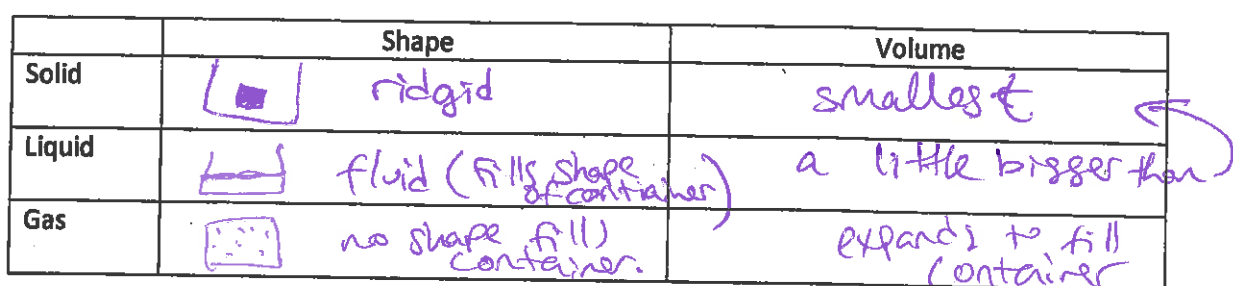 Shape Volume
Solid ridgid smallest
Liquid fluid (fills shape of container) a little bigger than
Gas no shape fill) container. expands to fill container